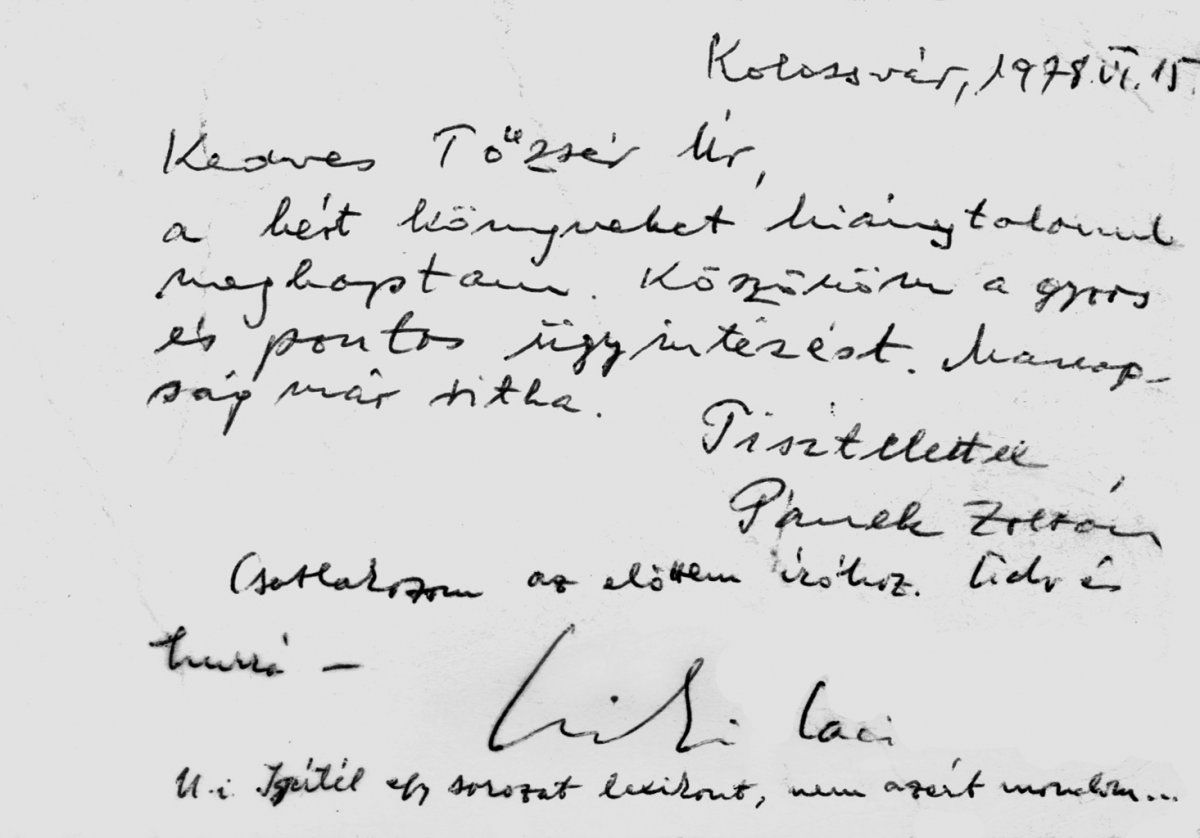 Kolozsvár, 1978. VI. 15.
Kedves Tőzsér Úr,
a kért könyveket hiánytalanul
megkaptam. Köszönöm a gyors
és pontos ügyintézést. Manap-
ság már ritka.
Tisztelettel
Panek Zoltán
Csatlakozom az előttem íróhoz. Üdv és
hurrá –
Laci
U.i. Ígértél egy sorozat lexikont, nem azért mondom...